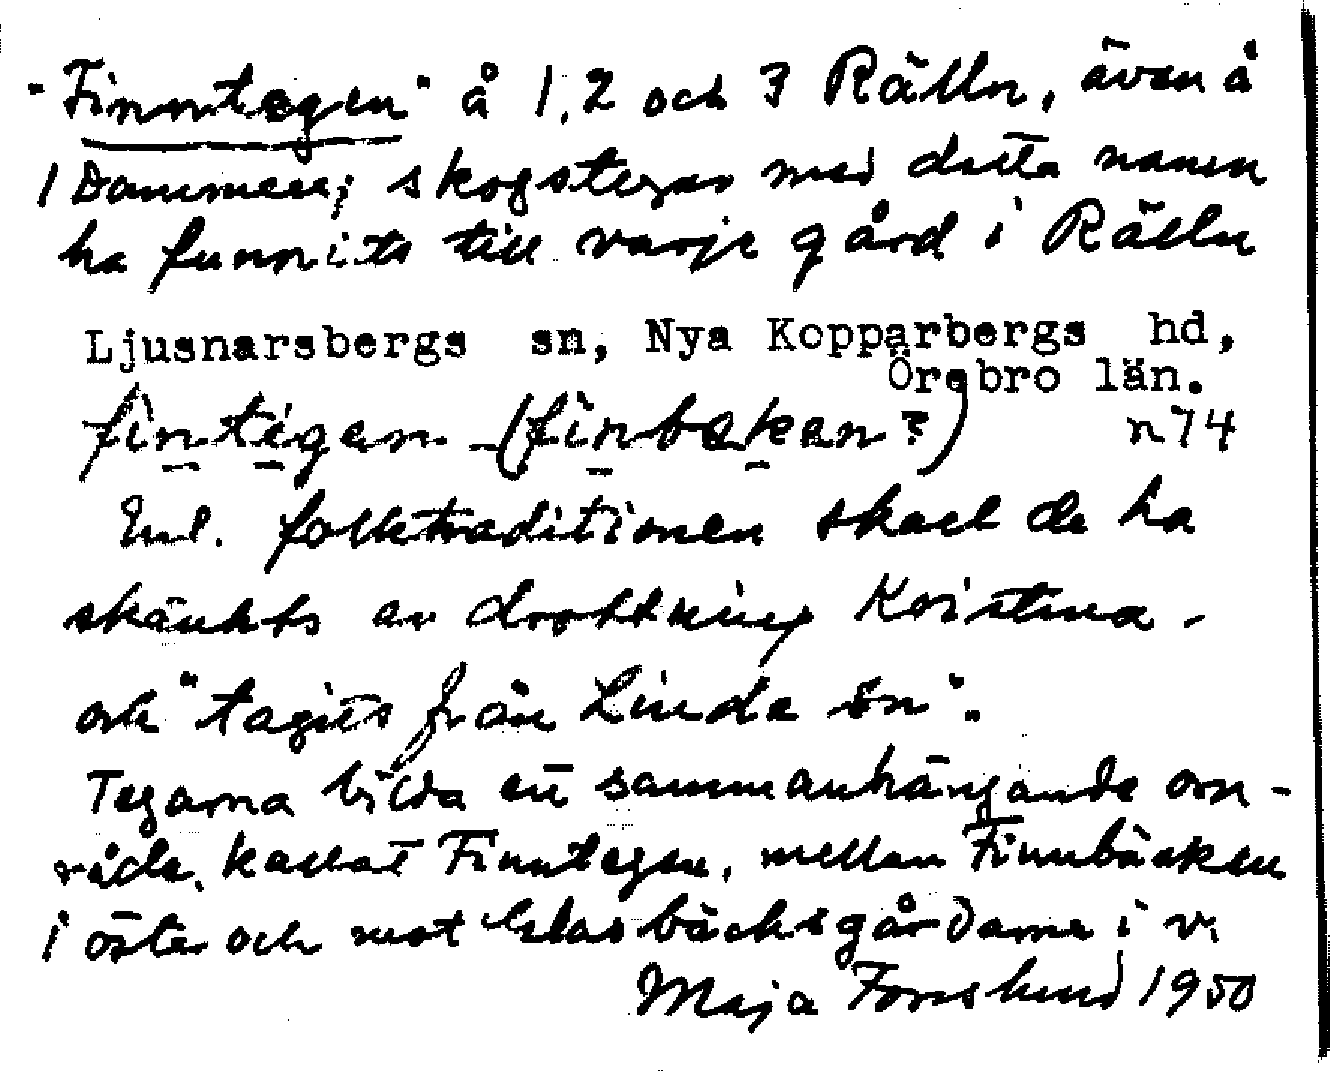 "Finntegen" å 1, 2 och 3 Rälln, även å
1 Dammen; skogstegar med detta namn
ha funnits till varje gård i Rälln
Ljusnarsbergs sn, Nya Kopparbergs hd,
Örebro län.
fintigen (finbəkən?) n74
Enl. folktraditionen skall de ha
skänkts av drottning Kristina -
och "tagits från Linde sn".
Tegarna bilda ett sammanhängande om-
råde, kallat Finntegen, mellan Finnbäcken
i öster och mot Klasbäcksgårdarna i v.
Maja Forslund 1950